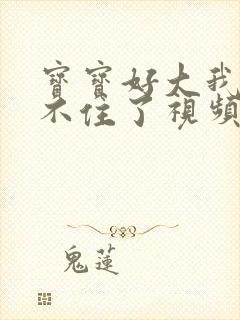 寶寶好大我
不住了視頻
鬼蓮